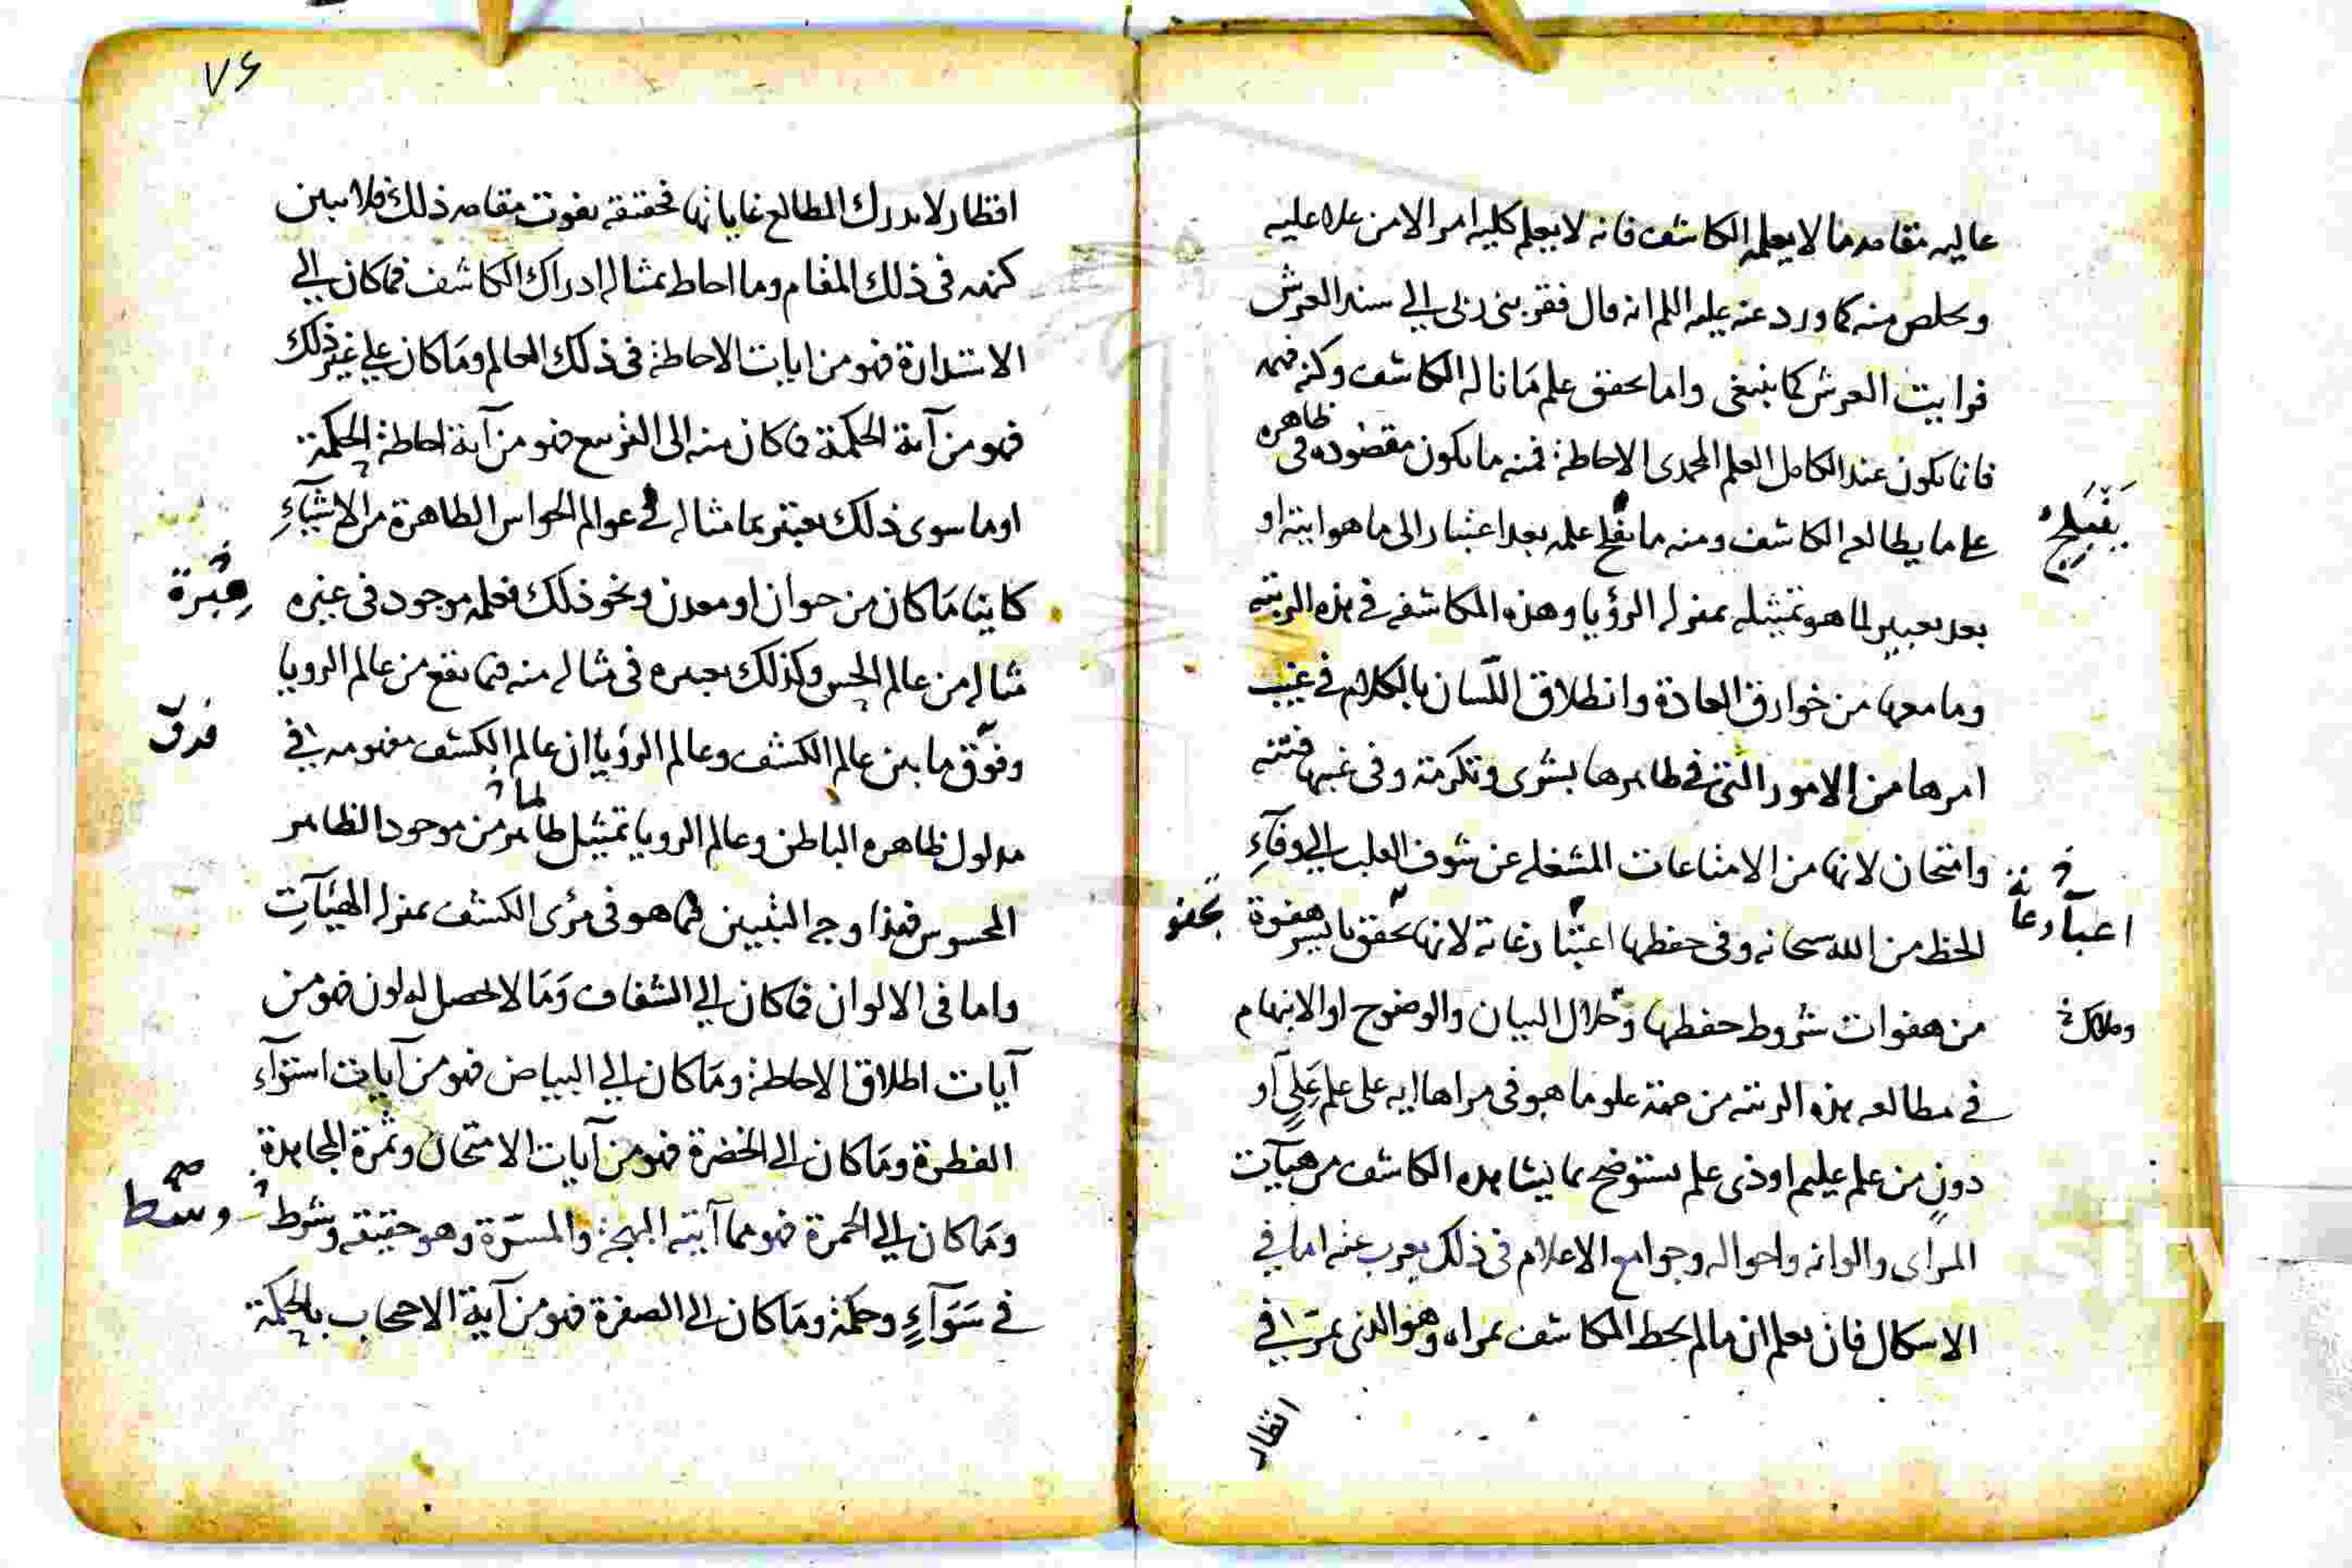 عاليه مقامه مما لا يعلمه الكاشف فانه لا يعلم كليه امر الا من علا عليه
وخلص منه كما ورد عنه عليه السلم انه قال فقربنى ربى الى سند العرش
فرايت العرش كما ينبغى واما تحقق علم ما ناله الكاشف وكنه فهمه
فانما يكون عند الكامل العلم المحمدى الاحاطة فمنه ما يكون مقصوده فى ظاهره
على ما يطالعه الكاشف ومنه ما علمه بعد اعتبار الى ما هو ايته او
بعد تعبير لما هو تمثيله بمنزله الرؤيا وهذه المكاشفه فى هذه الرتبه
وما معها من خوارق العادة وانطلاق اللسان بالكلام فى غيب
امرها من الامور التى فى ظاهرها بشرى وتكرمة وفى غيبها فتنه
وامتحان لانها من الامتاعات المشغله عن شوف القلب الى وفاء
الحظ من الله سبحانه وفى حفظها لانها بايسر هفوة
من هفوات شروط حفظها وخلال البيان والوضوح او الابهام
فى مطالعه هذه الرتبه من جهة علو ما هو فى مراها ايه على علم على او
دون من علم عليم او ذى علم يستوضح بما يشاهده الكاشف من هيآت
المراى والوانه واحواله وجوامع الاعلام فى ذلك يعرب عنه اما فى
الاشكال فان يعلم ان ما لم يحط المكاشف بمراه وهو الذى يمر فى
اقطار
٧٤
اقطار لا يدرك المطالع غاياتها فحقيقه يفوت مقامه ذلك فلا يبين
كنهه فى ذلك المقام وما احاط بمثاله ادراك الكاشف فما كان الى
الاستدارة فهو من ايات الاحاطة فى ذلك العالم وما كان على غير ذلك
فهو من آية الحكمة فما كان منه الى التربيع فهو من آية احاطة الحكمة
او ما سوى ذلك يعتبر بما مثاله فى عوالم الحواس الظاهرة من الاشياء
كاينا ما كان من حيوان او معدن ونحو ذلك فعلمه موجود فى عبره
مثاله من عالم الحس وكذلك تعبيره فى مثاله منه فيما يقع من عالم الرويا
وفرق ما بين عالم الكشف وعالم الرؤيا ان عالم الكشف مفهومه فى
مدلول ظاهره الباطن وعالم الرويا تمثيل لما ظاهر من موجود الظاهر
المحسوس فهذا وجه التبيين فيما هو فى مرئى الكشف بمنزله الهيآت
واما فى الالوان فما كان الى الشفاف وما لا يحصل له لون فهو من
آيات اطلاق الاحاطة وما كان الى البياض فهو من آيات استواء
الفطرة وما كان الى الخضرة فهو من آيات الامتحان وثمرة المجاهدة
وما كان الى الحمرة فهو مما آيته البهجة والمسرة وهو حقيقه وشوط
فى سواء وحكمة وما كان الى الصفرة فهو من آية الاحجاب بالحكمة
عبرة
فرق